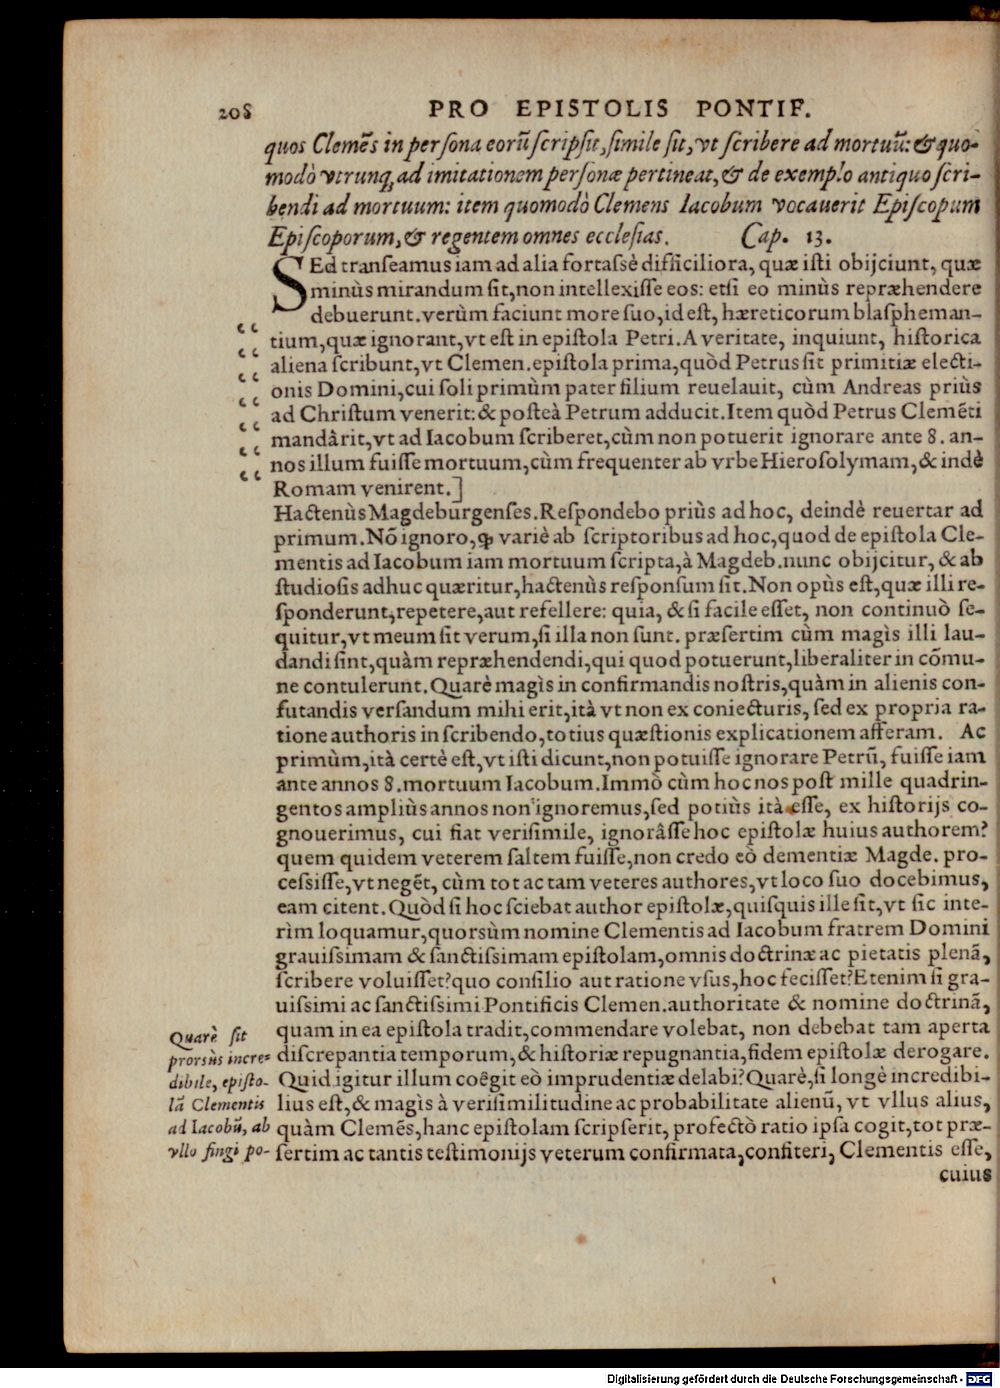 208 PRO EPISTOLIS PONTIF.
quos Clemẽs in persona eorũ scripsit, simile sit, vt scribere ad mortuũ: & quo-
modò vtrunq; ad imitationem personæ pertineat, & de exemplo antiquo scri-
bendi ad mortuum: item quomodò Clemens Iacobum vocauerit Episcopum
Episcoporum, & regentem omnes ecclesias. Cap. 13.
SEd transeamus iam ad alia fortassè difficiliora, quæ isti obijciunt, quæ
minùs mirandum sit, non intellexisse eos: etsi eo minùs repræhendere
debuerunt. verùm faciunt more suo, id est, hæreticorum blaspheman-
tium, quæ ignorant, vt est in epistola Petri. A veritate, inquiunt, historica
aliena scribunt, vt Clemen. epistola prima, quòd Petrus sit primitiæ electi-
onis Domini, cui soli primùm pater filium reuelauit, cùm Andreas priùs
ad Christum venerit: & posteà Petrum adducit. Item quòd Petrus Clemẽti
mandârit, vt ad Iacobum scriberet, cùm non potuerit ignorare ante 8. an-
nos illum fuisse mortuum, cùm frequenter ab vrbe Hierosolymam, & indè
Romam venirent.]
Hactenùs Magdeburgenses. Respondebo priùs ad hoc, deindè reuertar ad
primum. Nõ ignoro, ꝙ variè ab scriptoribus ad hoc, quod de epistola Cle-
mentis ad Iacobum iam mortuum scripta, à Magdeb. nunc obijcitur, & ab
studiosis adhuc quæritur, hactenùs responsum sit. Non opùs est, quæ illi re-
sponderunt, repetere, aut refellere: quia, & si facile esset, non continuò se-
quitur, vt meum sit verum, si illa non sunt. præsertim cùm magìs illi lau-
dandi sint, quàm repræhendendi, qui quod potuerunt, liberaliter in cõmu-
ne contulerunt. Quarè magìs in confirmandis nostris, quàm in alienis con-
futandis versandum mihi erit, ità vt non ex coniecturis, sed ex propria ra-
tione authoris in scribendo, totius quæstionis explicationem afferam. Ac
primùm, ità certè est, vt isti dicunt, non potuisse ignorare Petrũ, fuisse iam
ante annos 8. mortuum Iacobum. Immò cùm hoc nos post mille quadrin-
gentos ampliùs annos non ignoremus, sed potiùs ità esse, ex historijs co-
gnouerimus, cui fiat verisimile, ignorâsse hoc epistolæ huius authorem?
quem quidem veterem saltem fuisse, non credo eò dementiæ Magde. pro-
cessisse, vt negẽt, cùm tot ac tam veteres authores, vt loco suo docebimus,
eam citent. Quòd si hoc sciebat author epistolæ, quisquis ille sit, vt sic inte-
rìm loquamur, quorsùm nomine Clementis ad Iacobum fratrem Domini
grauissimam & sanctissimam epistolam, omnis doctrinæ ac pietatis plenã,
scribere voluisset? quo consilio aut ratione vsus, hoc fecisset? Etenim si gra-
uissimi ac sanctissimi Pontificis Clemen. authoritate & nomine doctrinã,
quam in ea epistola tradit, commendare volebat, non debebat tam aperta
discrepantia temporum, & historiæ repugnantia, fidem epistolæ derogare.
Quid igitur illum coêgit eò imprudentiæ delabi? Quarè, si longè incredibi-
lius est, & magìs à verisimilitudine ac probabilitate alienũ, vt vllus alius,
quàm Clemẽs, hanc epistolam scripserit, profectò ratio ipsa cogit, tot præ-
sertim ac tantis testimonijs veterum confirmata, confiteri, Clementis esse,
cuius
Quarè sit
prorsùs incre-
dibile, episto-
lã Clementis
ad Iacobũ, ab
vllo fingi po-
Digitalisierung gefördert durch die Deutsche Forschungsgemeinschaft - DFG